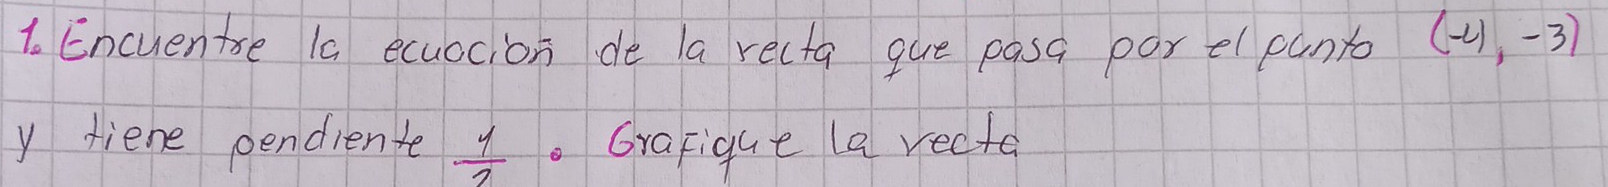 1. Encuentre la ecuación de la recta que pasa por el punto (-4, -3)
y tiene pendiente 1/2. Grafique la recta